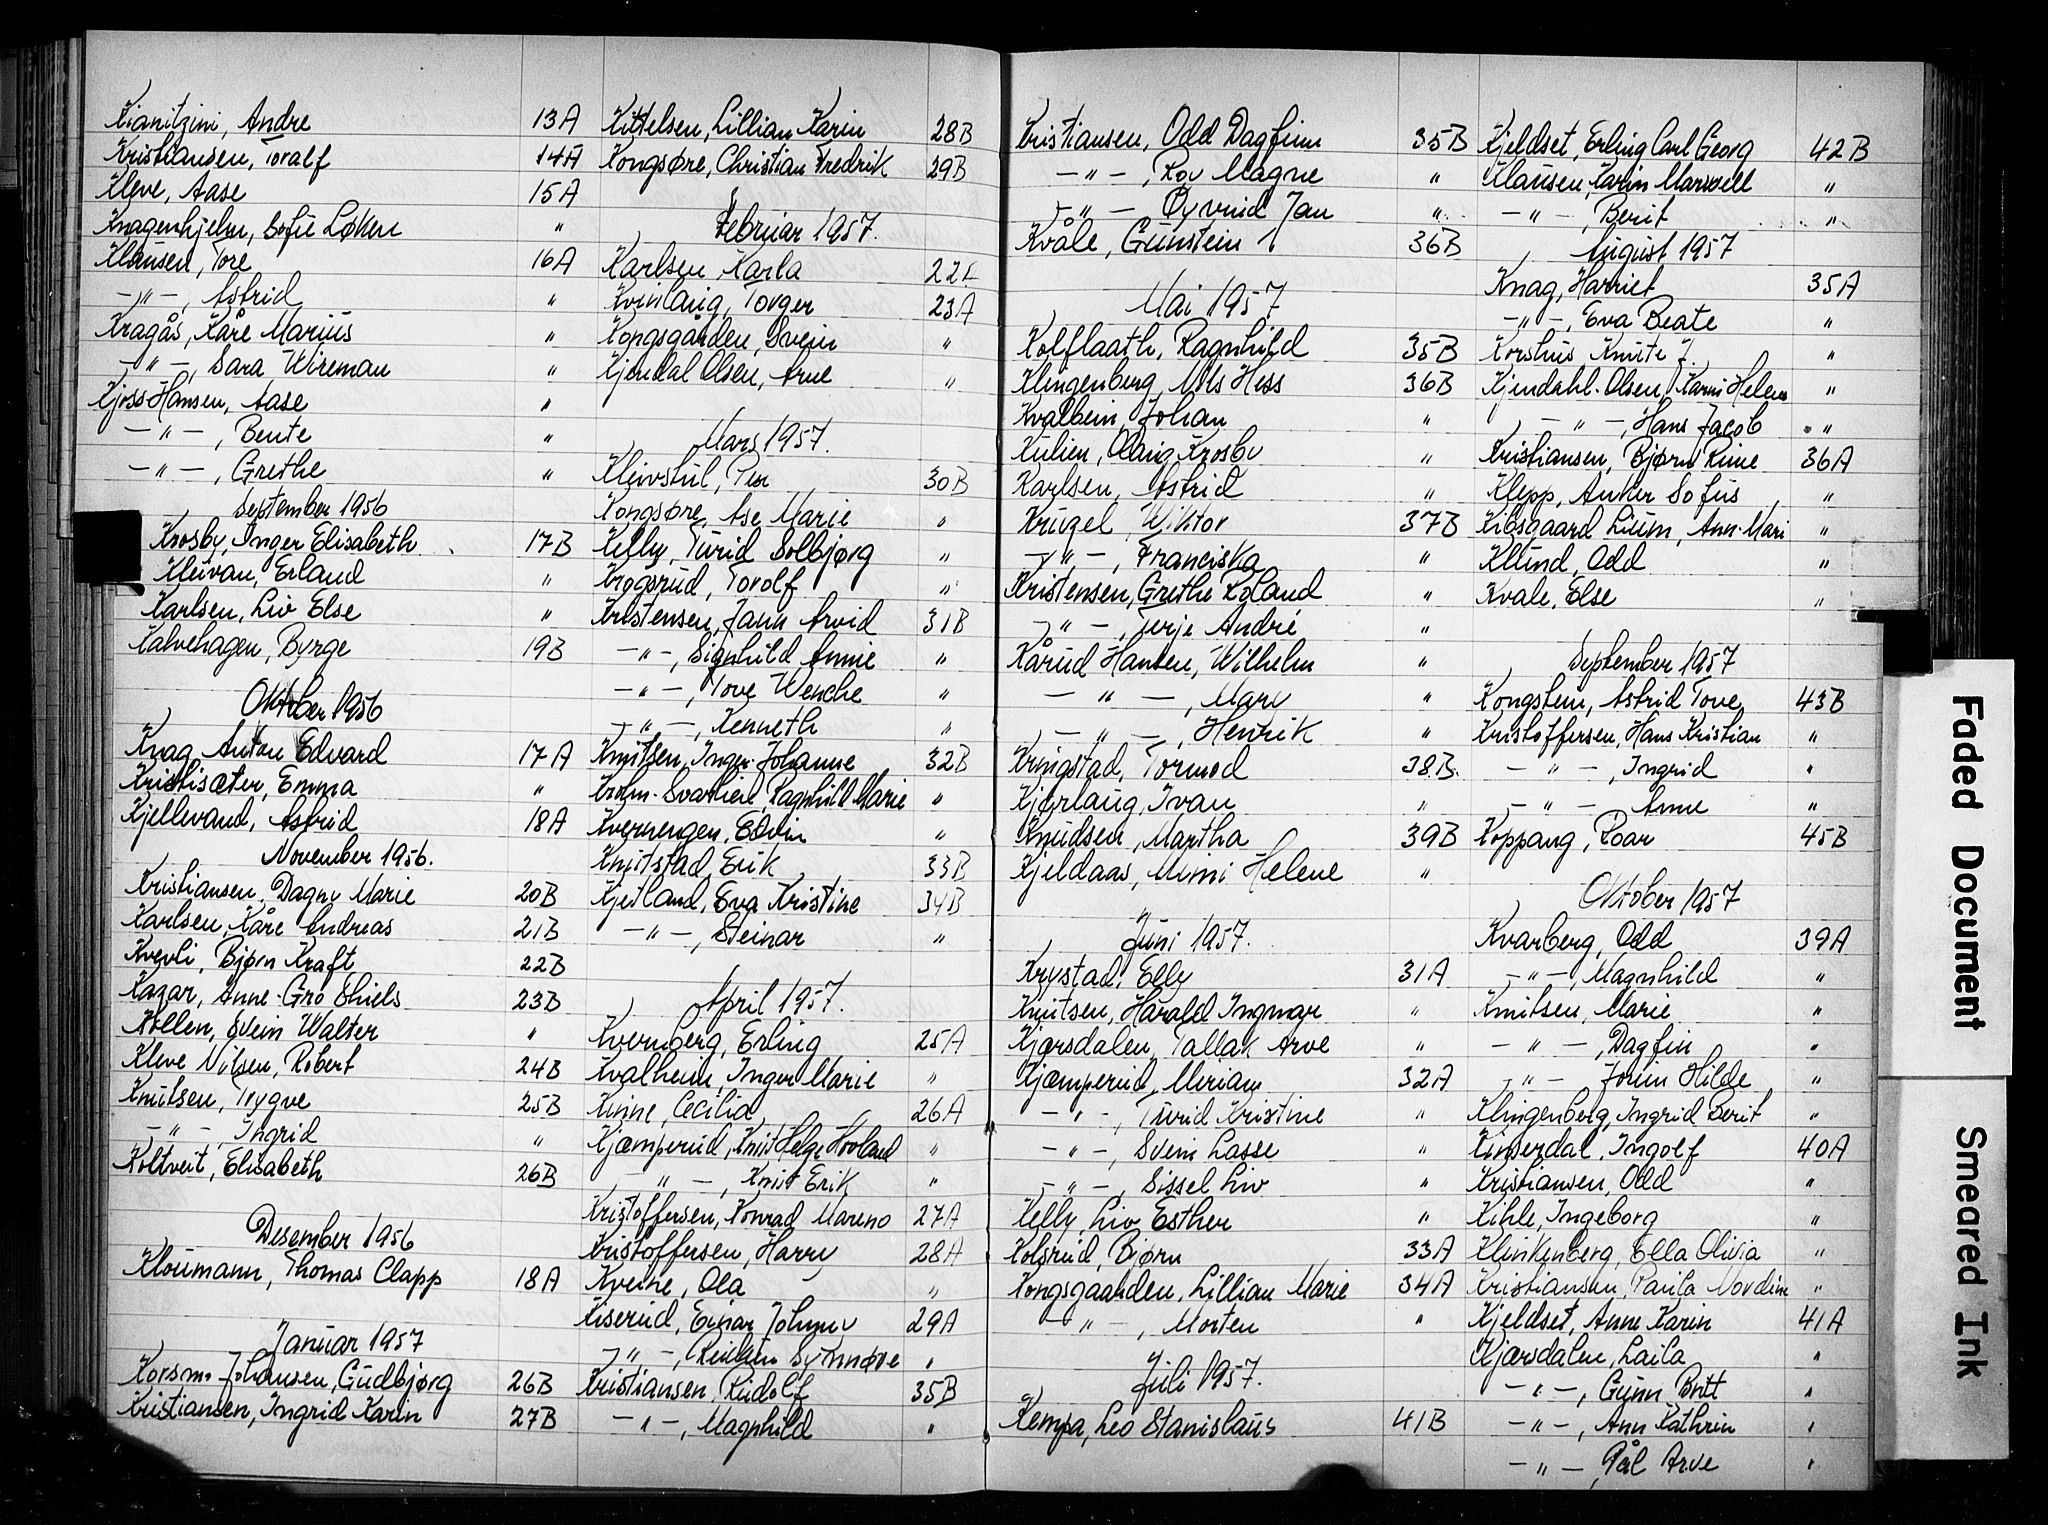 Kianitzini, Andre 13A
Kristiansen, Toralf 14A
Kleve, Aase 15A
Knagenhjelm, Sofie Løken "
Klausen, Tore 16A
—"—, Astrid "
Kragås, Kåre Marius "
—"—, Sara Wireman "
Kjoss Hansen, Aase "
—"—, Bente "
—"—, Grethe "
September 1956
Krosby, Inger Elisabeth 17B
Kleivan, Erland "
Karlsen, Liv Else "
Kalvehagen, Byrge 19B
Oktober 1956
Knag, Anton Edvard 17A
Kristisæter, Emma "
Kjellevand, Astrid 18A
November 1956.
Kristiansen, Dagny Marie 20B
Karlsen, Kåre Andreas 21B
Kvevli, Bjørn Kraft 22B
Kazar, Anne-Gro Shiels 23B
Kollen, Svein Walter "
Kleve Nilsen, Robert 24B
Knutsen, Trygve 25B
—"—, Ingrid "
Koltveit, Elisabeth 26B
Desember 1956
Kloumann, Thomas Clapp 18A
Januar 1957
Korsmo Johansen, Gudbjørg 26B
Kristiansen, Ingrid Karin 27B
Kittelsen, Lillian Karin 28B
Kongsøre, Christian Fredrik 29B
Februar 1957.
Karlsen, Karla 22A
Kvinlaug, Torger 23A
Kongsgården, Svein "
Kjendal Olsen, Arne "
Mars 1957.
Kleivstul, Per 30B
Kongsøre, Ase Marie "
Kelly, Turid Solbjørg "
Krogsrud, Torolf "
Kristensen, Jann Arvid 31B
—"—, Signhild Annie "
—"—, Tove Wenche "
—"—, Kenneth "
Knutsen, Inger Johanne 32B
Krohn-Svatheie, Ragnhild Marie "
Kvernengen, Edvin "
Knutstad, Erik 33B
Kjetland, Eva Kristine 34B
—"—, Steinar "
April 1957.
Kvernberg, Erling 25A
Kvalheim, Inger Marie "
Kinne, Cecilia 26A
Kjæmperud, Knut Helge Hovland "
—"—, Knut Erik "
Kristoffersen, Konrad Mareno 27A
Kristoffersen, Harry 28A
Kverne, Ola "
Kiserud, Einar Johnny 29A
—"—, Reidun Synnøve "
Kristiansen, Rudolf 35B
—"—, Magnhild "
Kristiansen, Odd Dagfinn 35B
—"—, Roy Magne "
—"—, Øyvind Jan "
Kvåle, Gunstein 36B
Mai 1957
Kolflaath, Ragnhild 35B
Klingenberg, Nils Hess 36B
Kvalbein, Johan "
Kulien, Olaug Krosby "
Karlsen, Astrid "
Krugel, Wiktor 37B
—"—, Franciska "
Kristensen, Grethe Roland "
—"—, Terje André "
Kårud Hansen, Wilhelm "
—"—, Mary "
—"—, Henrik "
Kringstad, Tormod 38B.
Kjørlaug, Ivan "
Knudsen, Martha 39B
Kjeldaas, Mimi Helene "
Juni 1957.
Krystad, Elly 31A
Knutsen, Harald Ingmar "
Kjærsdalen, Tallak Arve "
Kjæmperud, Miriam 32A
—"—, Turid Kristine "
—"—, Svein Lasse "
—"—, Sissel Liv "
Kelly, Liv Esther "
Kolsrud, Bjørn 33A
Kongsgaarden, Lillian Marie 34A
—"—, Morten "
Juli 1957.
Kempa, Leo Stanislaus 41B
Kjeldset, Erling Carl Georg 42B
Klausen, Karin Marwell "
—"—, Berit "
August 1957
Knag, Harriet 35A
—"—, Eva Beate "
Korshus Knute J. "
Kjendahl-Olsen, Karin Helene "
—"—, Hans Jacob "
Kristiansen, Bjørn Rune 36A
Klepp, Anker Sofus "
Kibsgaard Lium, Ann-Mari "
Klund, Odd "
Kvale, Else "
September 1957
Kongstein, Astrid Tove 43B
Kristoffersen, Hans Kristian "
—"—, Ingrid "
—"— Anne "
Koppang, Roar 45B
Oktober 1957
Kvarberg, Odd 39A
—"—, Magnhild "
Knutsen, Marie "
—"—, Dagfin "
—"— Jorun Hilde "
Klingenberg, Ingrid Berit "
Kinserdal, Ingolf 40A
Kristiansen, Odd "
Kihle, Ingeborg "
Klinkenberg, Ella Olivia "
Kristiansen, Paula Nordine "
Kjeldset, Anne Karin 41A
Kjærsdalen, Laila "
—"—, Gunn Britt "
—"—, Ann Kathrin "
—"—, Pål Arve "
Faded Document
Smeared Ink